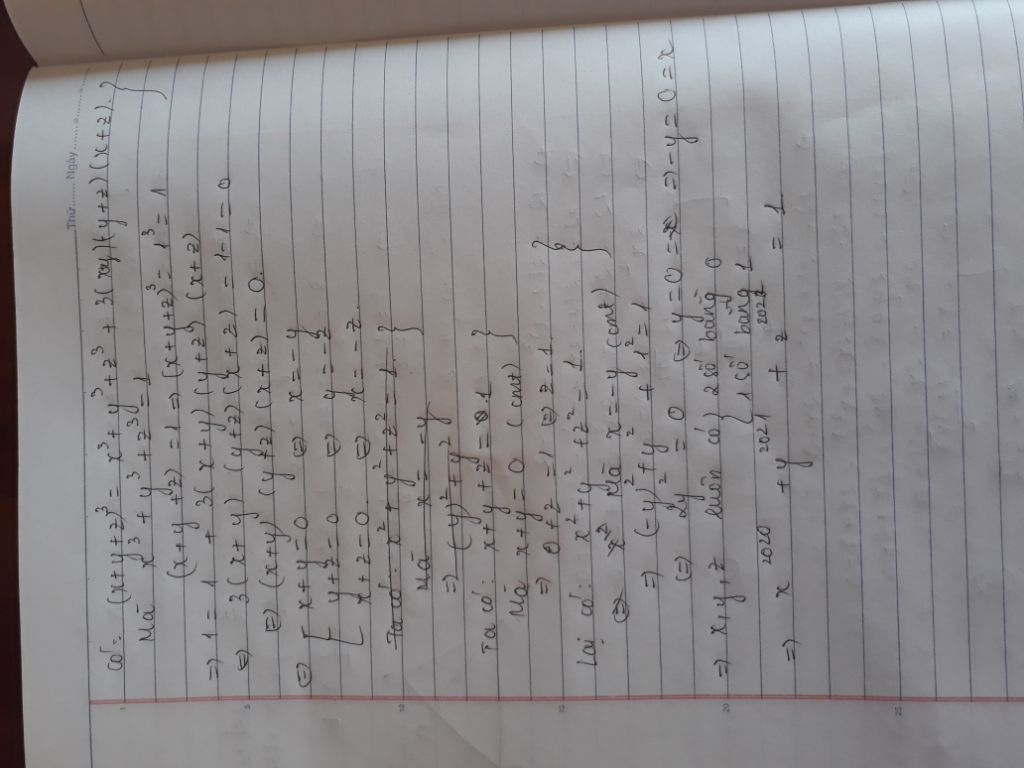 Thứ ......... Ngày .........
Có: (x+y+z)³ = x³ + y³ + z³ + 3(x+y)(y+z)(x+z). }
Mà x³ + y³ + z³ = 1 }
(x+y+z) = 1 ⇒ (x+y+z)³ = 1³ = 1
⇒ 1 = 1 + 3(x+y)(y+z)(x+z)
⇔ 3(x+y)(y+z)(x+z) = 1-1 = 0
⇔ (x+y)(y+z)(x+z) = 0.
⇔ [ x+y=0 ⇔ x=-y
y+z=0 ⇔ y=-z
x+z=0. ⇔ x=-z.
Ta có: x² + y² + z² = 1. }
Mà x=-y }
⇒ (-y)² + y²
Ta có: x+y+z = 1 }
Mà x+y=0 (cmt) }
⇒ 0+z = 1 ⇔ z=1.
Lại có: x² + y² + z² = 1. }
Mà x=-y (cmt) }
⇒ (-y)² + y² + 1² = 1
⇔ 2y² = 0 ⇔ y=0 ⇒ -y=0=x
⇒ x,y,z luôn có { 2 số bằng 0
1 số bằng 1
⇒ x²⁰²⁰ + y²⁰²¹ + z²⁰²² = 1
5
10
15
20
25